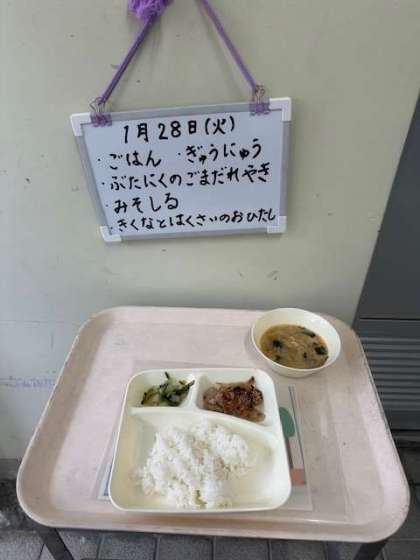 1月28日(火)
・ごはん ・ぎゅうにゅう
・ぶたにくのごまだれやき
・みそしる
・きくなとはくさいのおひたし